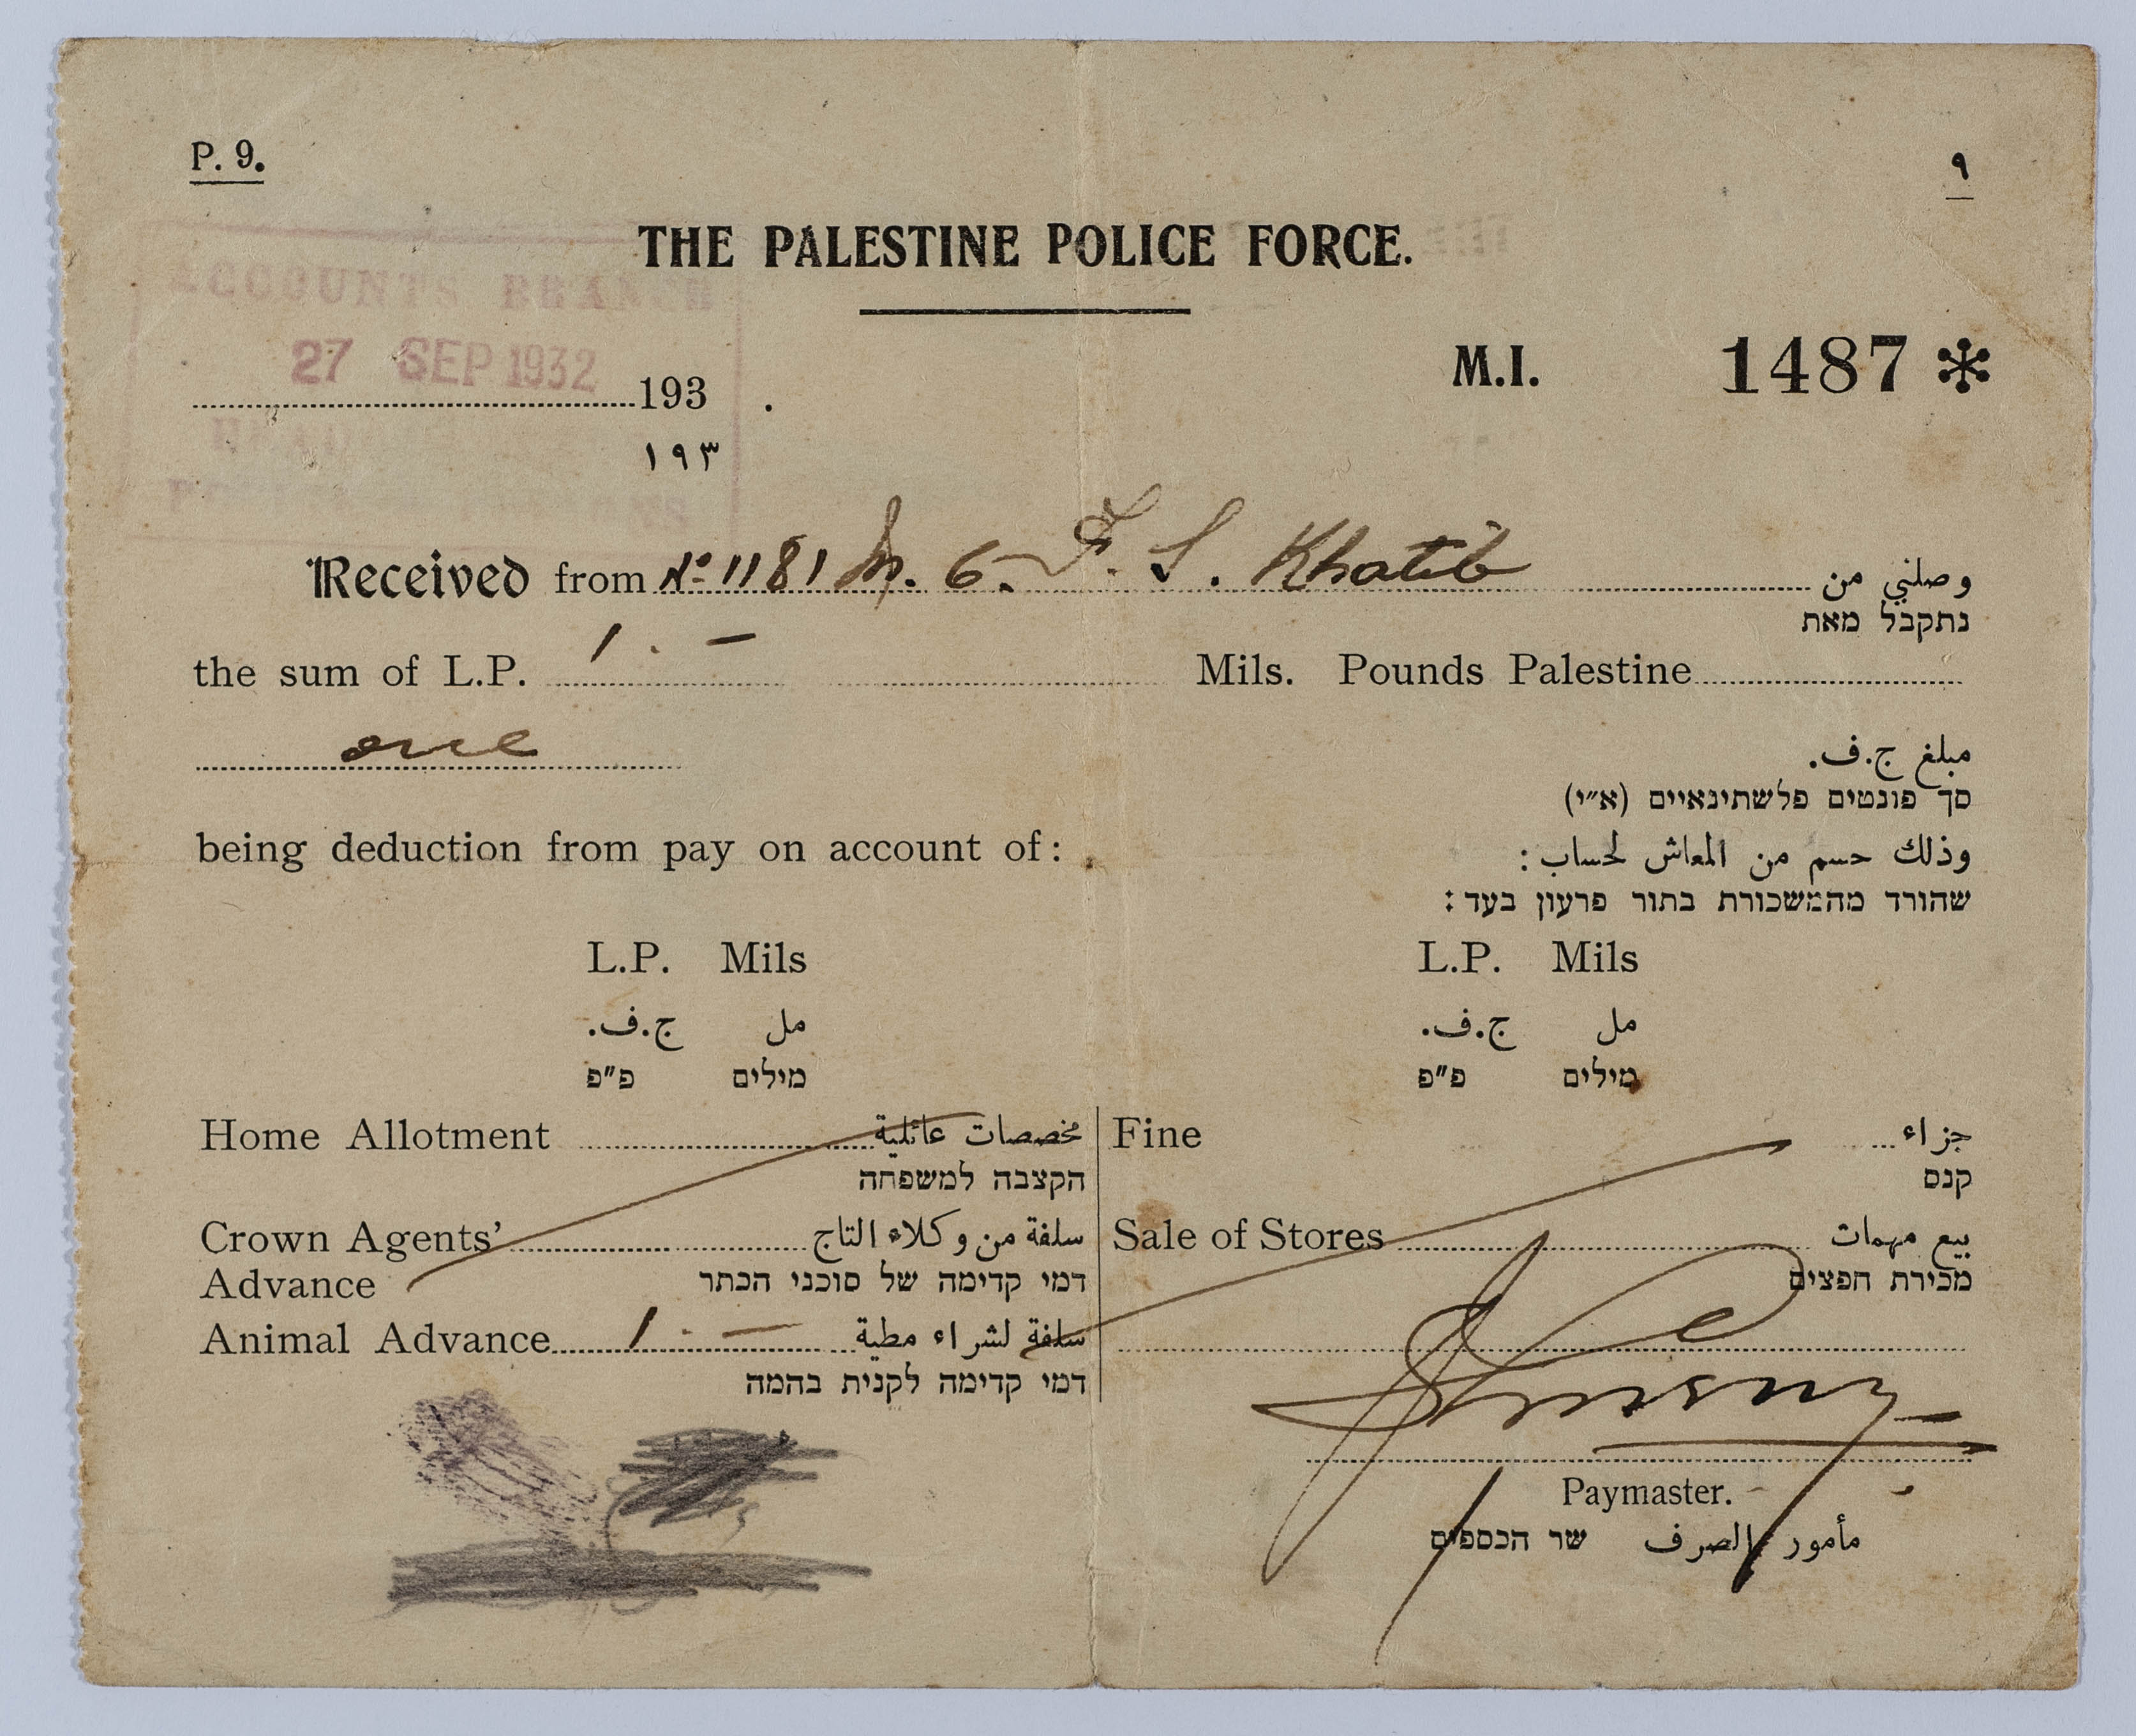 P. 9.
٩
THE PALESTINE POLICE FORCE.
ACCOUNTS BRANCH
27 SEP 1932
M.I. 1487
193 .
١٩٣
Received from No 1181 M. C. F. S. Khatib وصلني من
נתקבל מאת
the sum of L.P. 1 . — Mils. Pounds Palestine
one
مبلغ ج.ف.
סך פונטים פלשתינאיים (א״י)
being deduction from pay on account of: وذلك حسم من المعاش لحساب :
שהורד מהמשכורת בתור פרעון בעד :
L.P. Mils L.P. Mils
ج.ف. مل ج.ف. مل
פ״פ מילים פ״פ מילים
Home Allotment مخصصات عائلية Fine جزاء
הקצבה למשפחה קנס
Crown Agents' سلفة من وكلاء التاج Sale of Stores بيع مهمات
Advance דמי קדימה של סוכני הכתר מכירת חפצים
Animal Advance 1 . — سلفة لشراء مطية
דמי קדימה לקנית בהמה
Paymaster.
שר הכספים مأمور الصرف